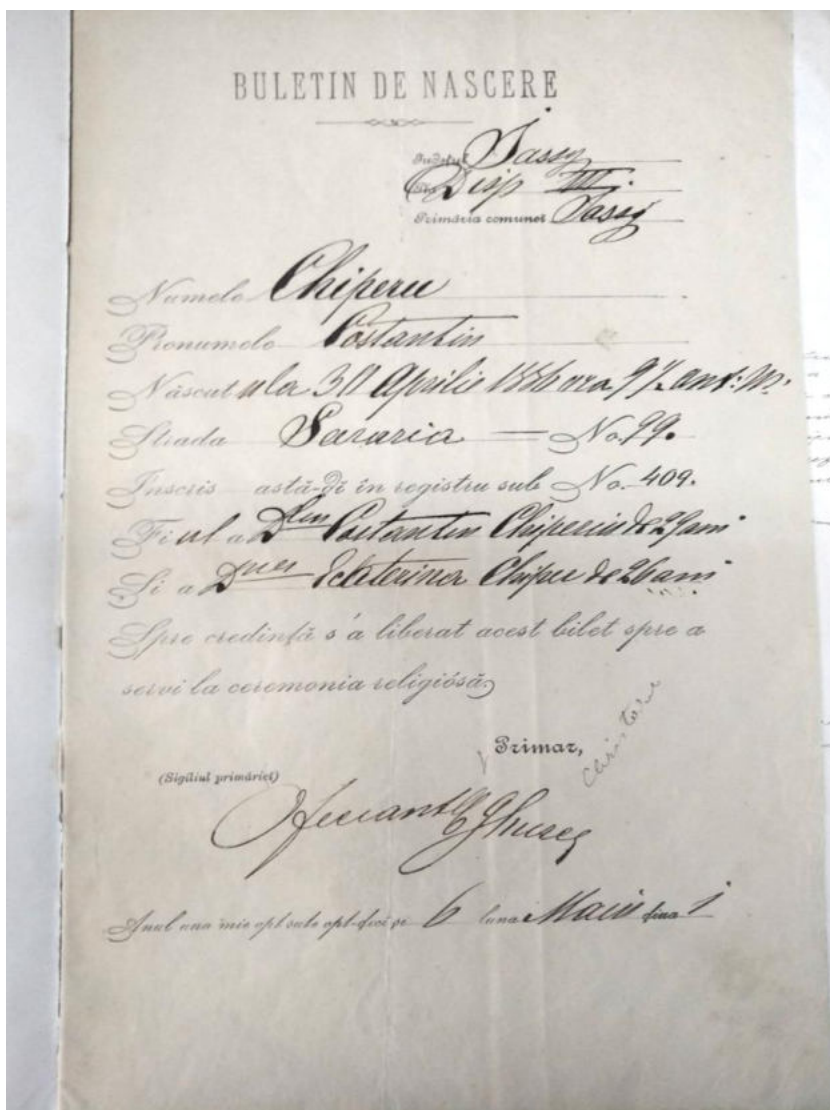 BULETIN DE NASCERE
Județul Jassy
Disp III.
Primăria comunei Jassy
Numele Chiperu
Pronumele Costantin
Născut ula 30 Aprilie 1886 ora 9½ ant: M.
Strada Sararia — No. 99.
Inscris astă-ḑi în registru sub No. 409.
Fiul a Dlui Costantin Chiperiu de 29 ani
Și a Dnei Ecaterina Chiper de 26 ani
Spre credință s'a liberat acest bilet spre a
servi la ceremonia religiósă.
Primar,
(Sigiliul primăriei)
Anul una mie opt sute opt-ḑeci și 6 luna Maiu ḑiua 1